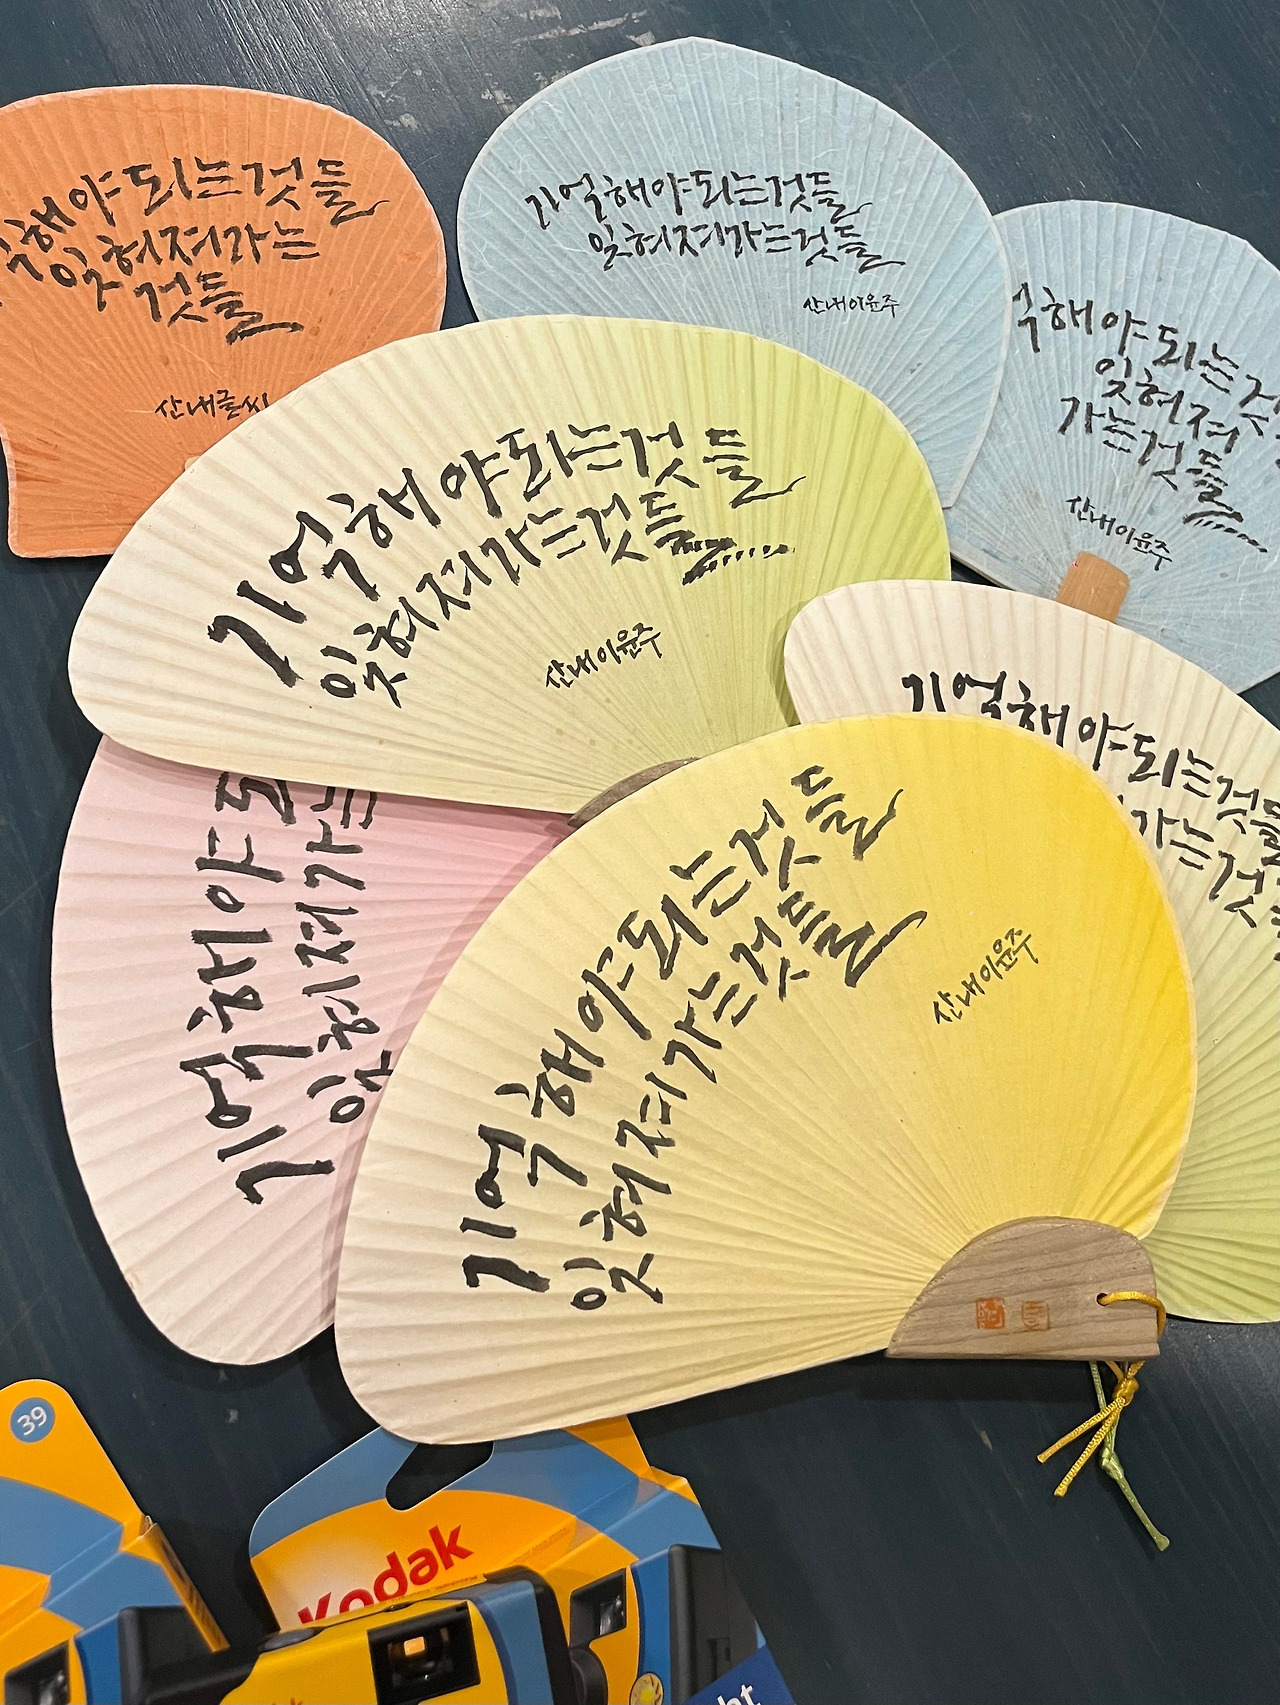 해야되는것들
잊혀져가는
것들
산내글씨
기억해야되는것들
잊혀져가는것들
산내이윤주
해야되는것
잊혀져
가는것들
산내이윤주
기억해야되는것들
잊혀져가는것들
산내이윤주
기억해야되는것들
가는것
기억해야되
잊혀져가는
기억해야되는것들
잊혀져가는것들
산내이윤주
39
Kodak